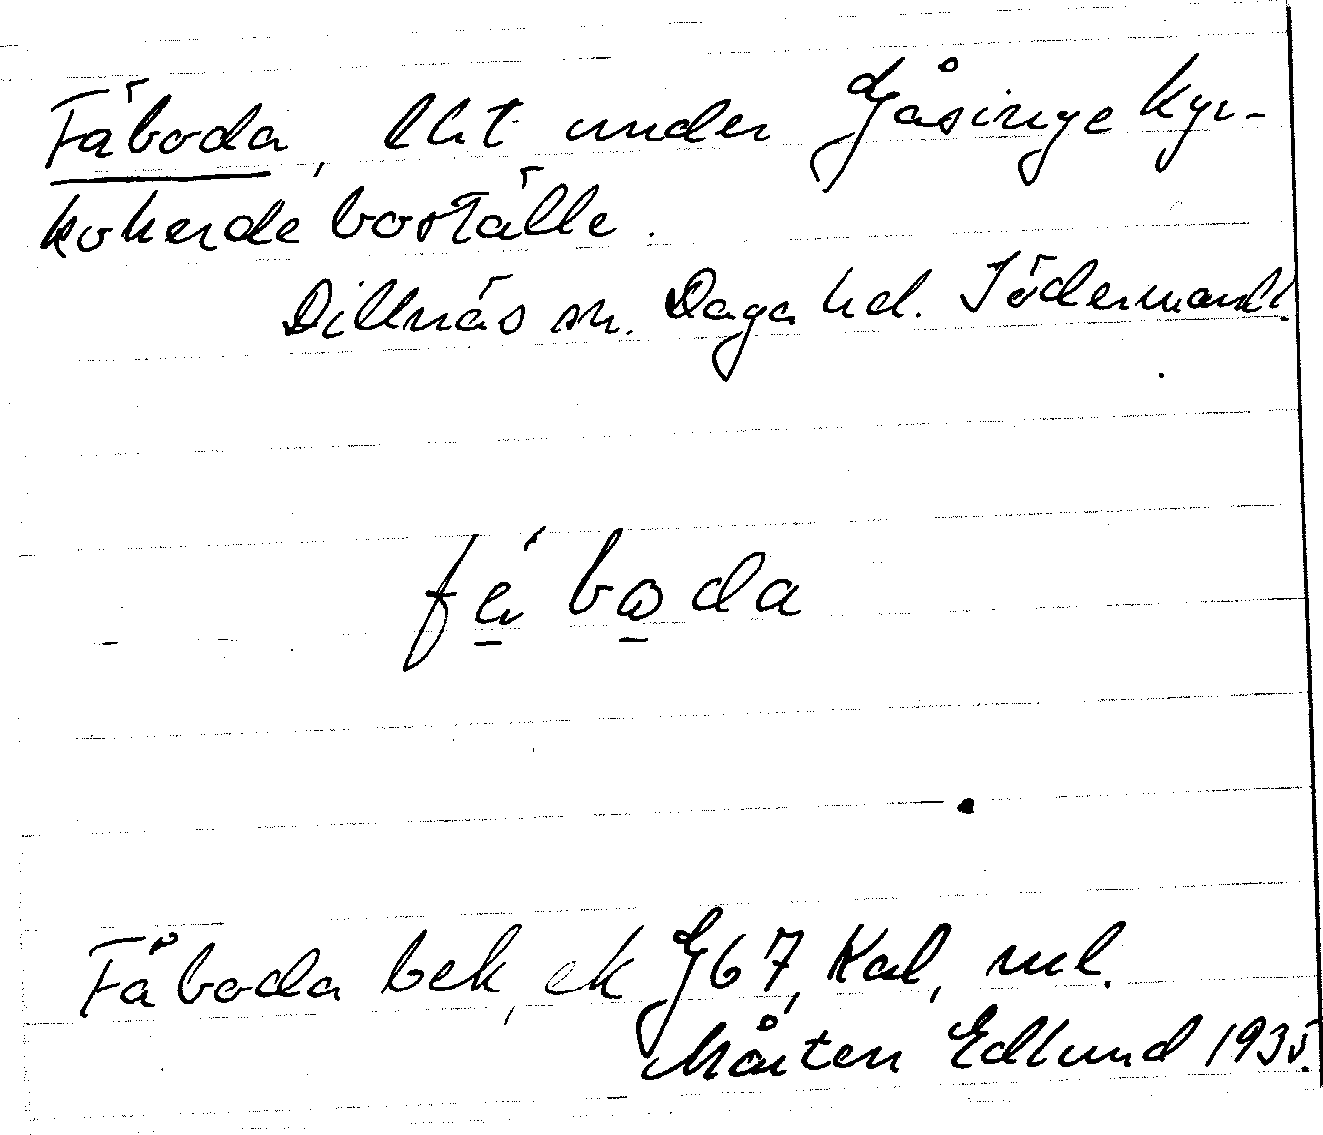 Fäboda, lht under Gåsinge kyr-
koherde boställe.
Dillnäs sn. Daga hd. Södermanl.
fä́boda
Fäboda bek, ek G67, Kal, ml.
Mårten Edlund 1935.